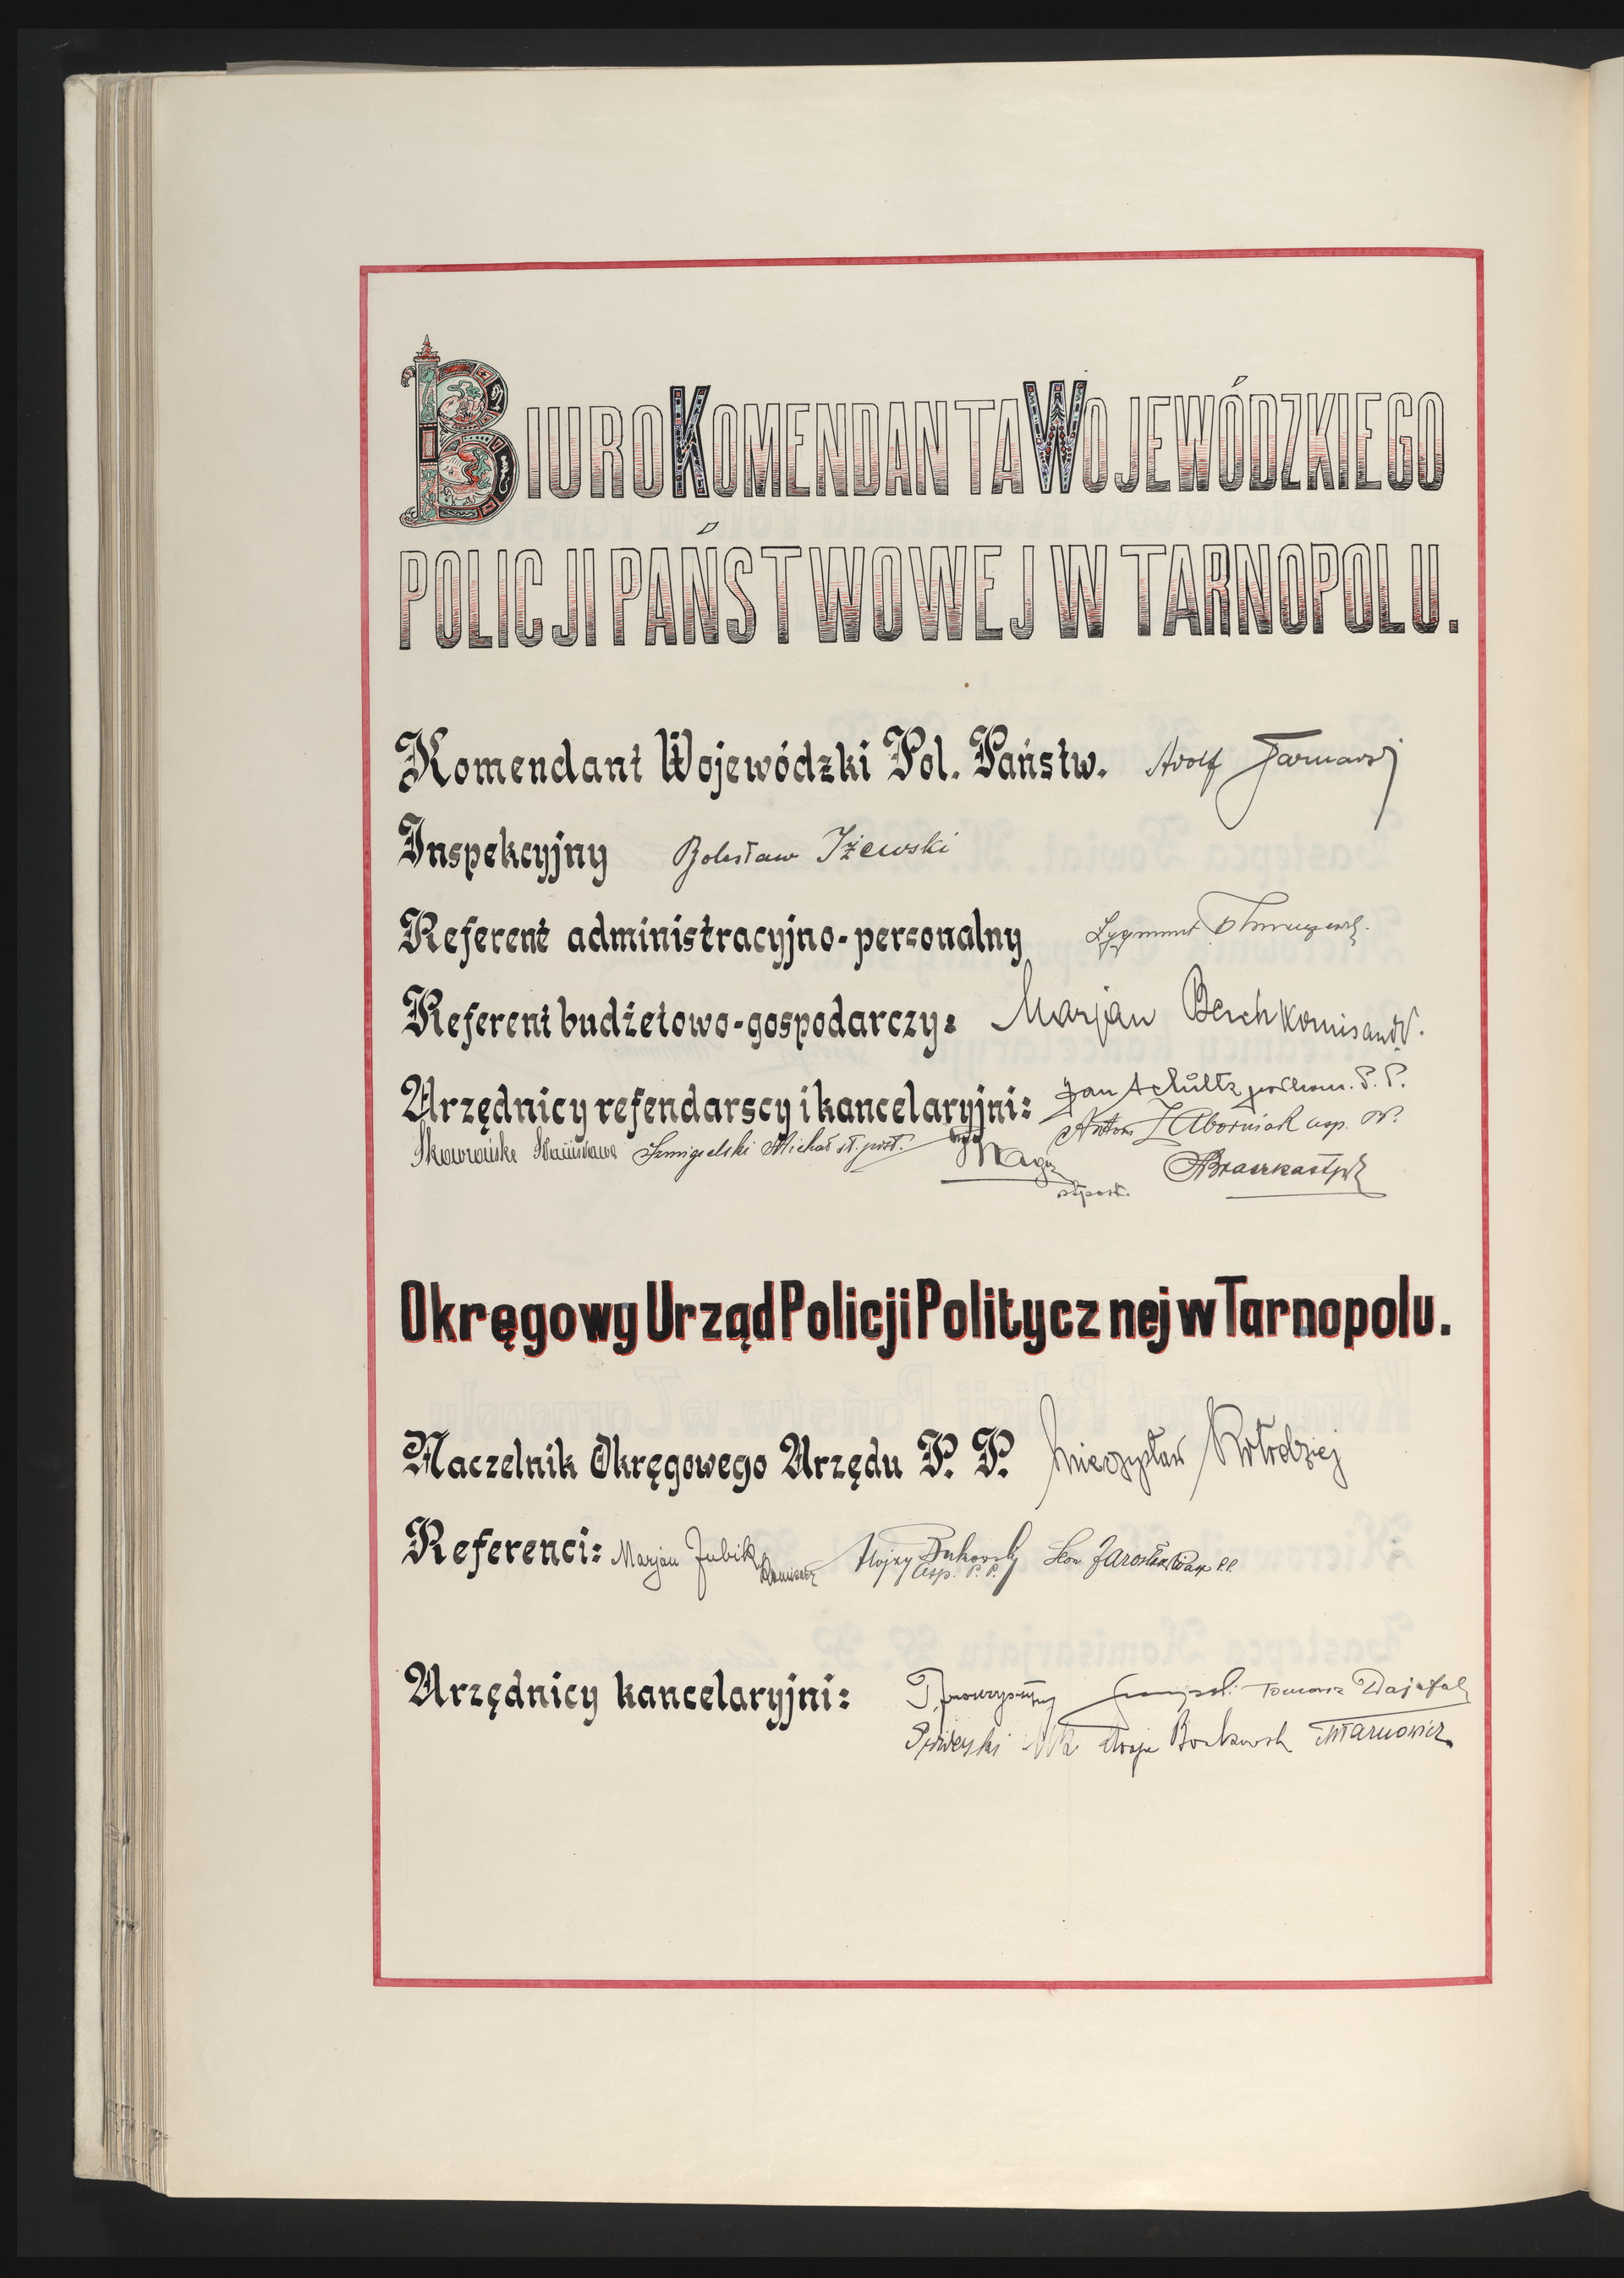 BIURO KOMENDANTA WOJEWÓDZKIEGO
POLICJI PAŃSTWOWEJ W TARNOPOLU.
Komendant Wojewódzki Pol. Państw. Adolf
Inspekcyjny Bolesław Iżewski
Referent administracyjno-personalny Zygmunt
Referent budżetowo-gospodarczy: Marjan Komisarz
Urzędnicy refendarscy i kancelaryjni: Jan Schultz podkom. P. P.
Antoni Zaborniak asp. P.
Skowrońska Stanisława Szmigielski Michał st. post.
st. post.
Okręgowy Urząd Policji Politycznej w Tarnopolu.
Naczelnik Okręgowego Urzędu P. P. Mieczysław Kołodziej
Referenci: Marjan Zubik Komisarz Alojzy Bukowski Leon
asp. P. P.
Urzędnicy kancelaryjni: Tomasz